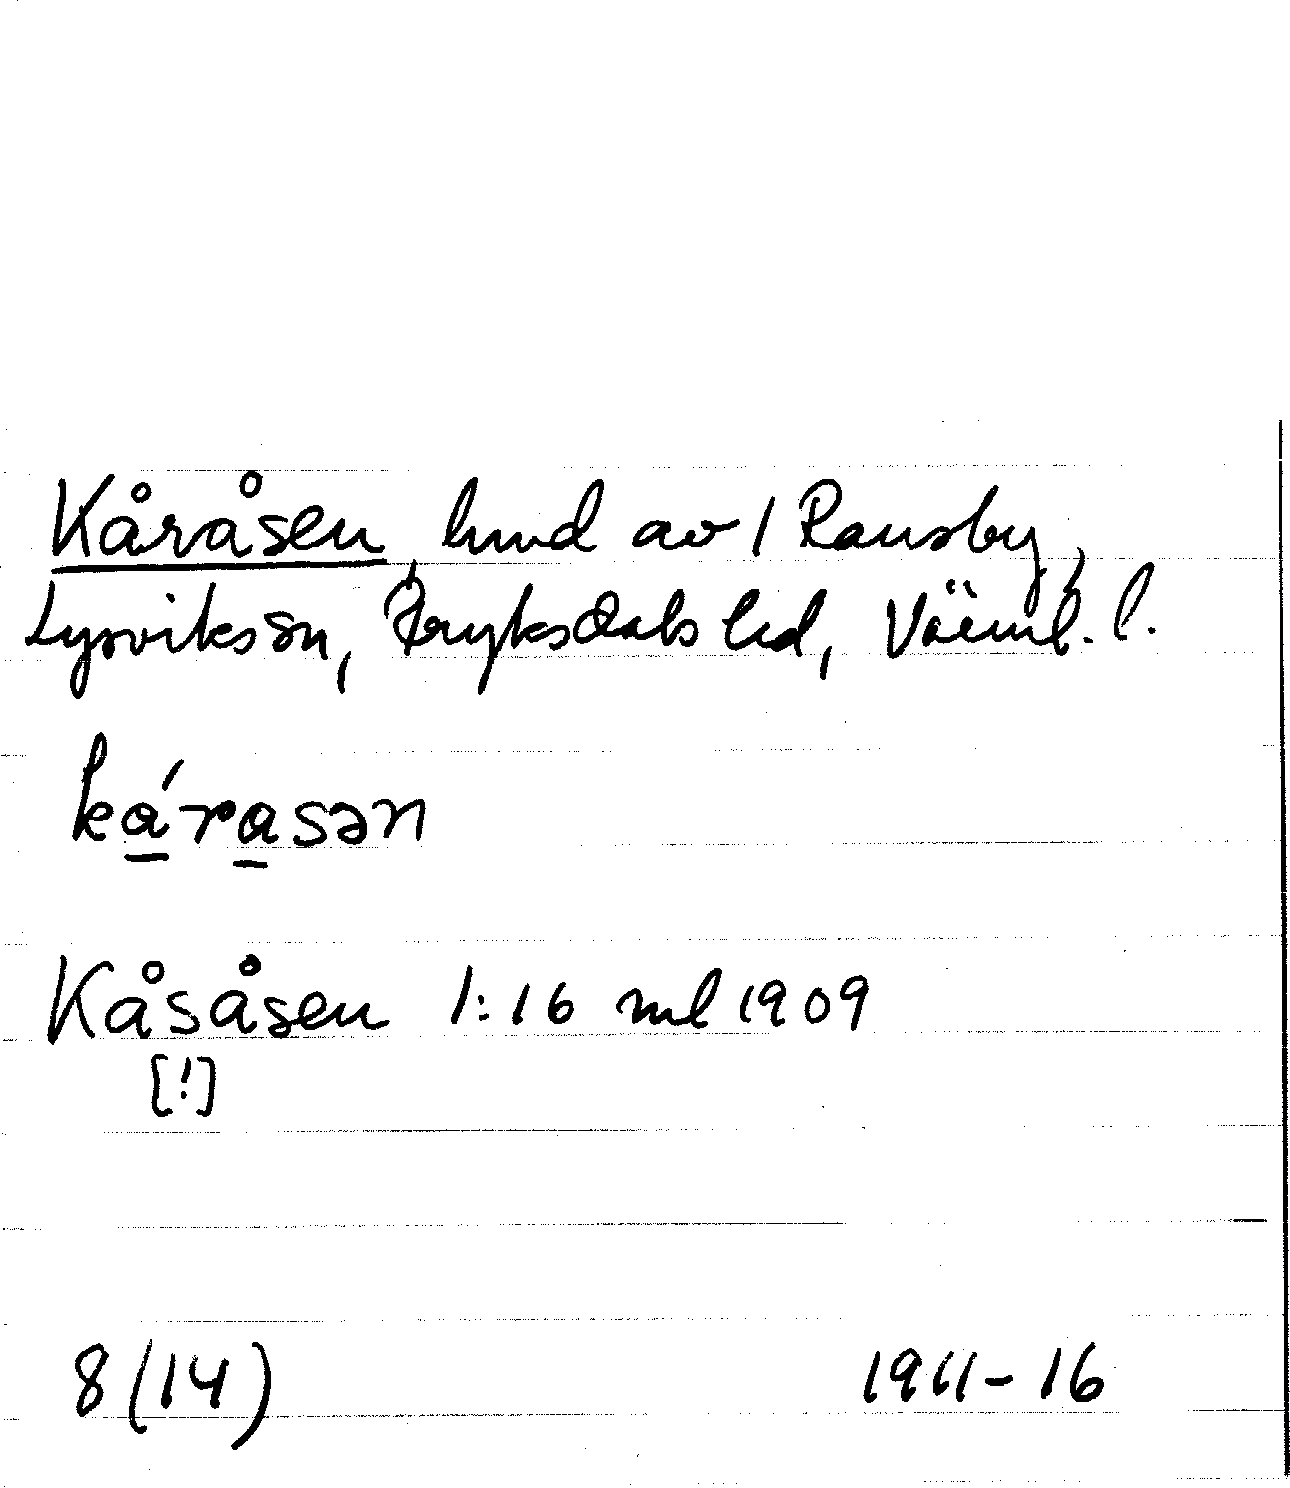 Kåråsen, hmd av / Ransby,
Lysviks sn, Fryksdals hd, Värml. l.
ká̱ra̱sən
Kåsåsen 1:16 ml 1909
[!]
8(14) 1911-16